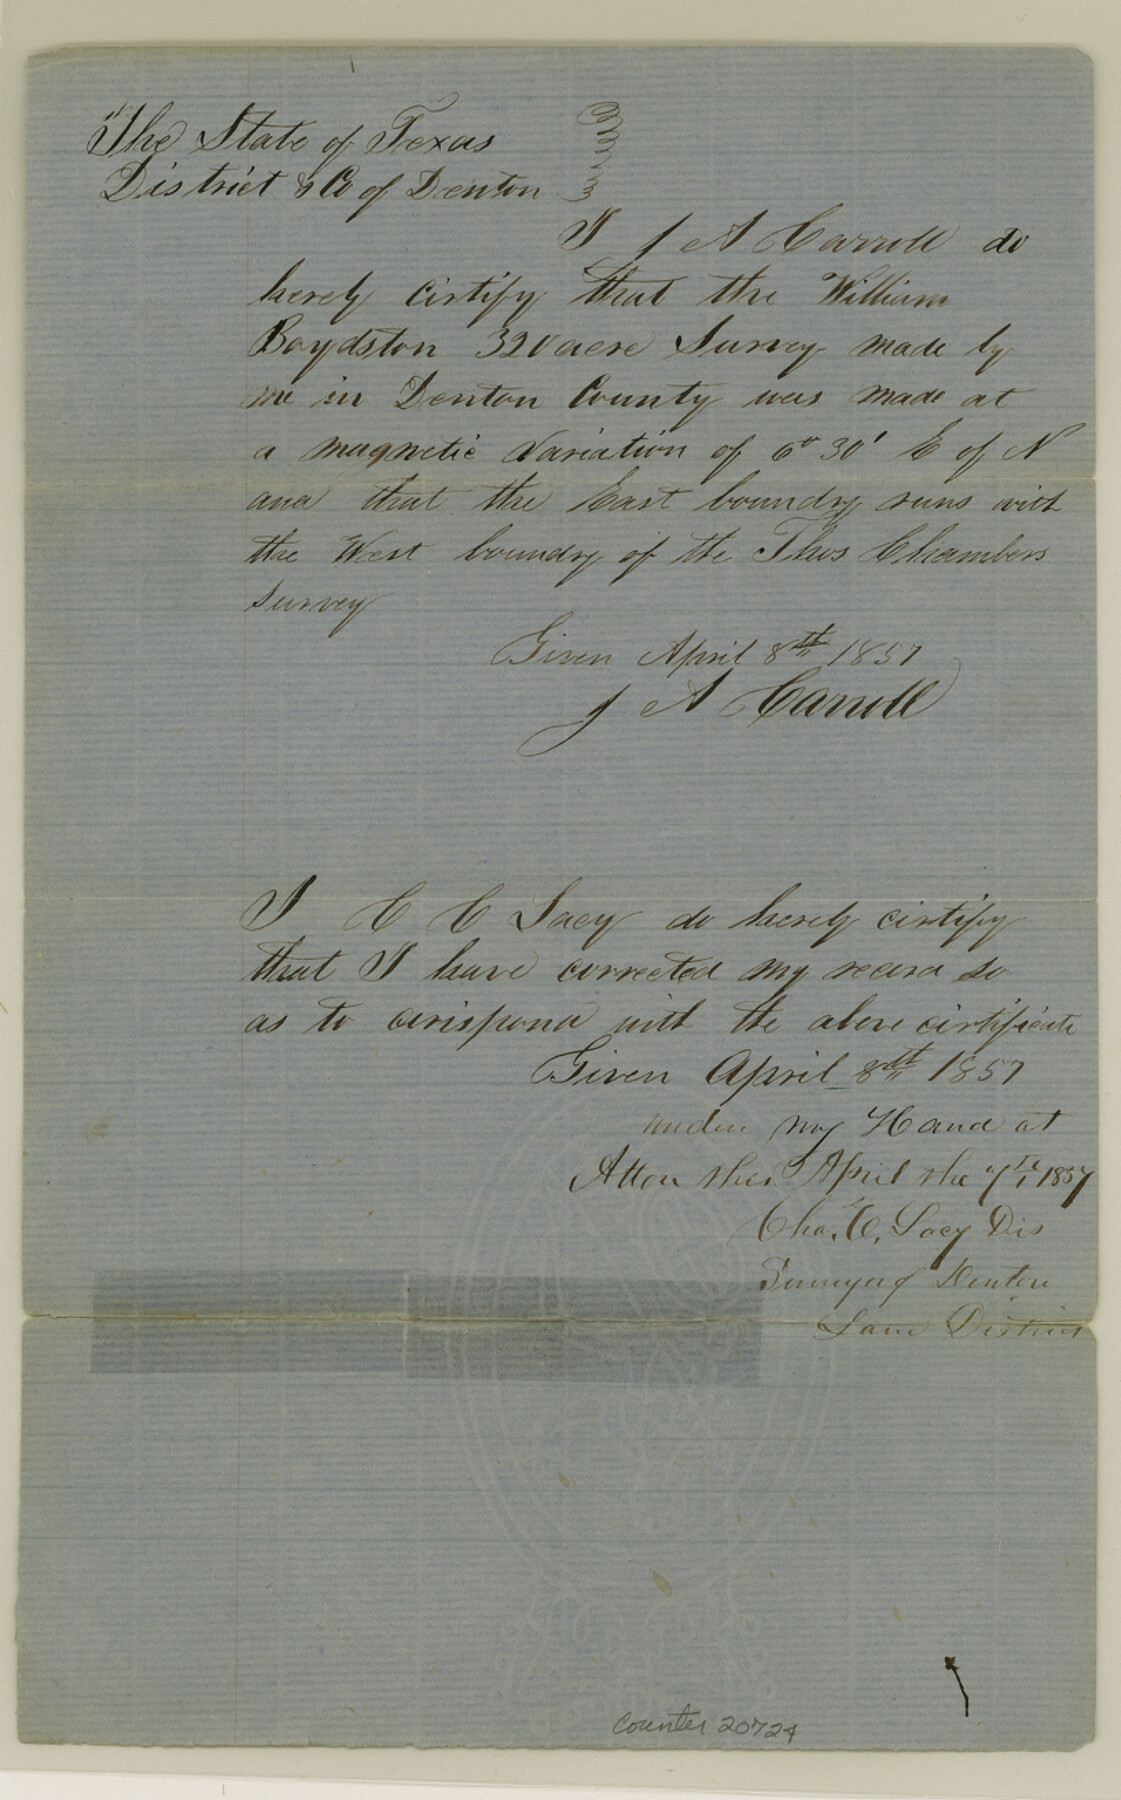 The State of Texas
District & Co of Denton
I J A Carroll do
hereby cirtify that the William
Boydston 320 acre Survey made by
me in Denton County was made at
a magnetic variation of 6° 30' E of N
and that the East boundry runs with
the West boundry of the Thos Chambers
Survey
Given April 8th 1857
J A Carroll
I C C Lacy do hereby cirtify
that I have corrected my record so
as to corispond with the above cirtificate
Given April 8th 1857
under my Hand at
Alton this April the 1857
Cha. C. Lacy Dis
Surveyor Denton
Land District
Counter 20724